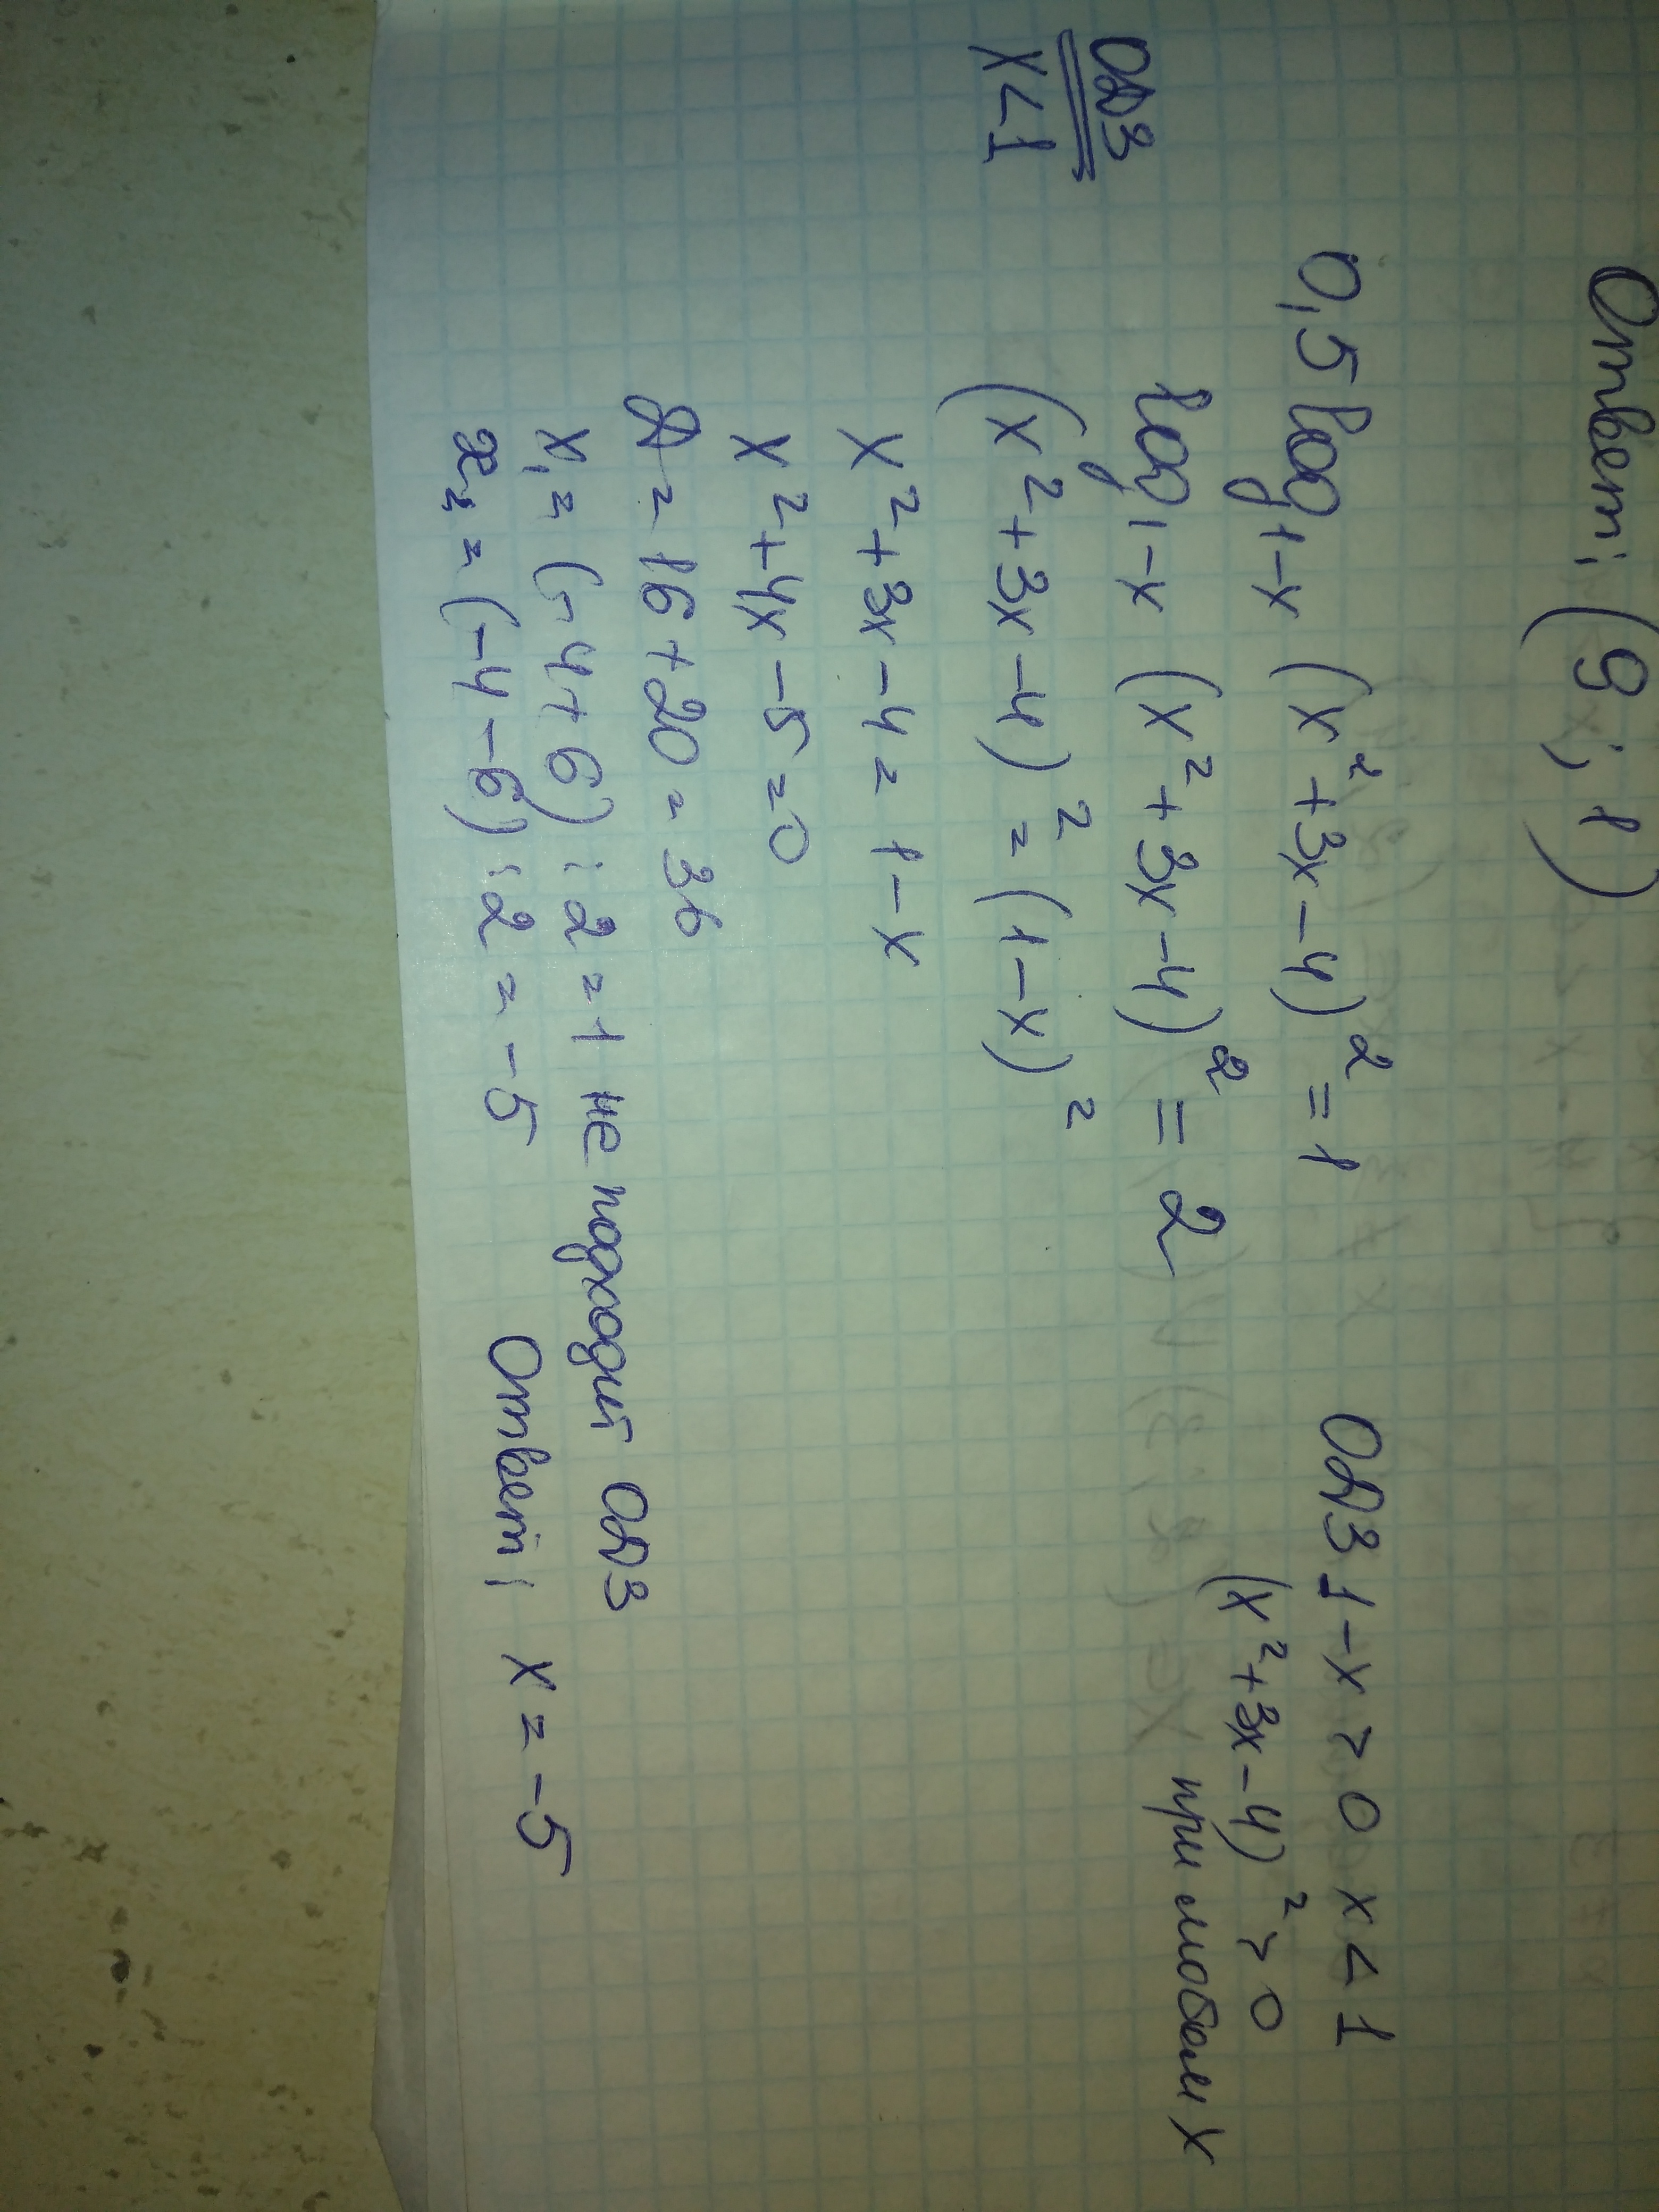 Ответ: (9; 1)
0,5 log₁₋ₓ (x² + 3x - 4)² = 1
ОДЗ 1 - x > 0 x < 1
(x² + 3x - 4)² > 0
при любом x
log₁₋ₓ (x² + 3x - 4)² = 2
ОДЗ
x < 1
(x² + 3x - 4)² = (1 - x)²
x² + 3x - 4 = 1 - x
x² + 4x - 5 = 0
Д = 16 + 20 = 36
x₁ = (-4 + 6) : 2 = 1 не подходит ОДЗ
x₂ = (-4 - 6) : 2 = -5
Ответ: x = -5